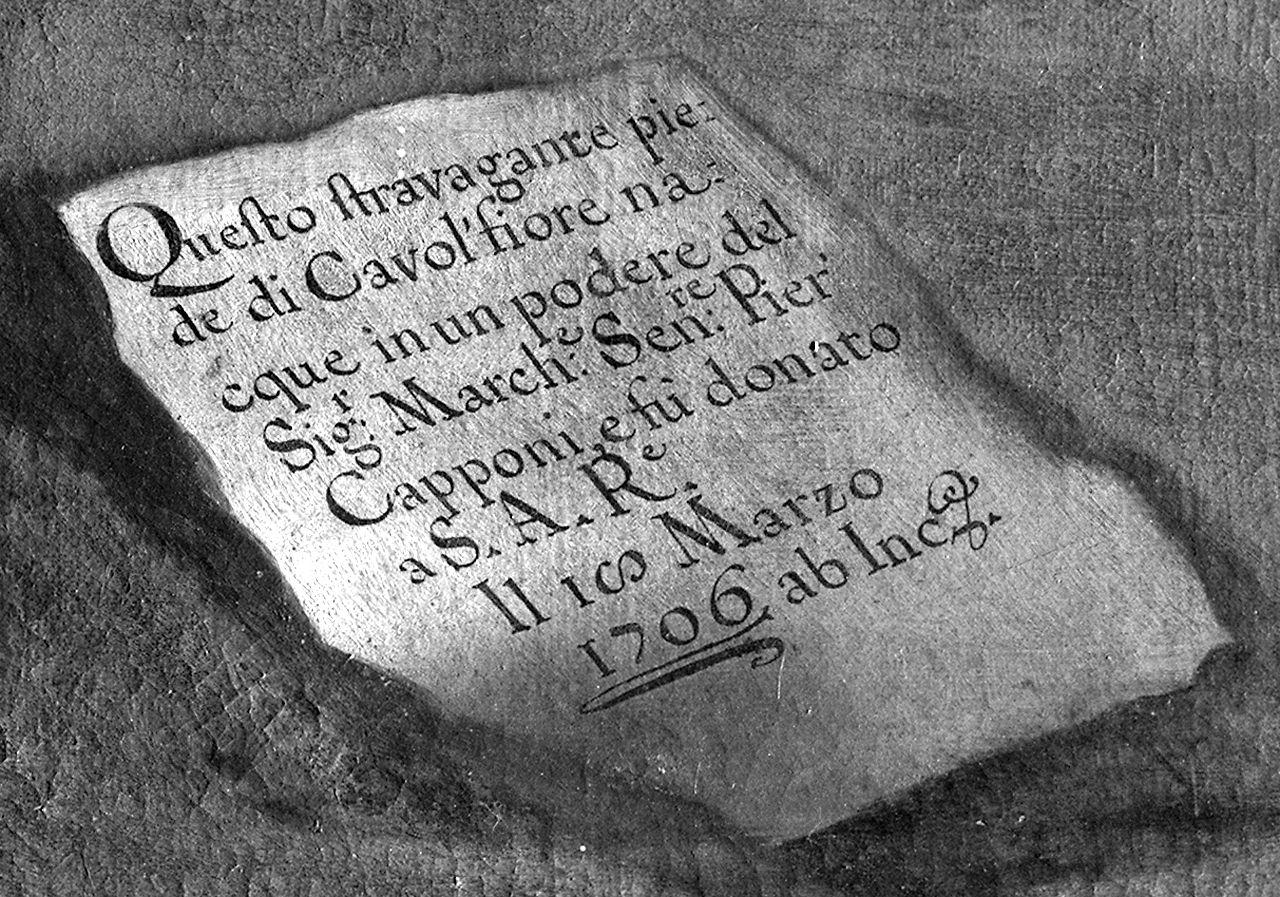 Queſto ſtravagante pie:
de di Cavol'fiore na:
cque in un podere del
Sig:r March:ſe Sen:re Pier
Capponi, e fù donato
a S. A. R.e
Il 18 Marzo
1706 ab Inc.